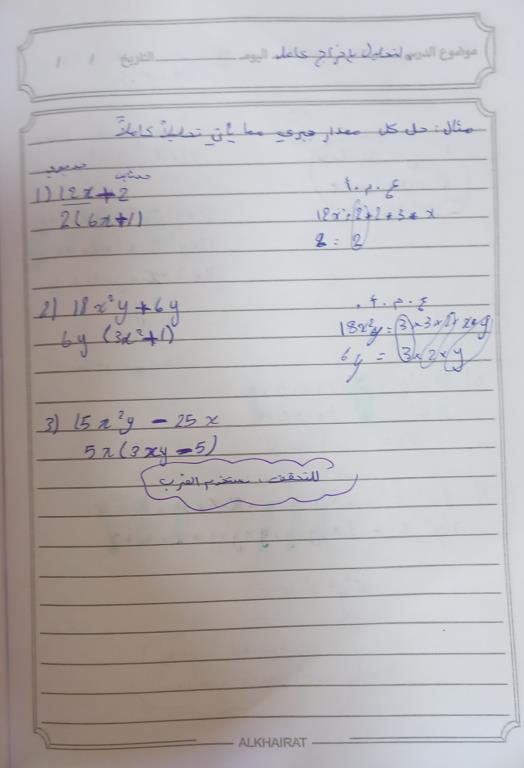 موضوع الدرس لتحليل بإخراج عامل اليوم التاريخ / /
مثال: حل كل مقدار جبري مما يأتي تحليلاً كاملاً
1) 12x + 2
2(6x+1)
ع.م.أ
12x = 2 × 2 × 3 × x
2 = 2
2) 18x²y + 6y
6y (3x²+1)
ع.م.أ.
18x²y = 3×3×2×x×y
6y = 3×2×y
3) 15x²y − 25x
5x(3xy−5)
للتحقق، نستخدم الضرب
ALKHAIRAT